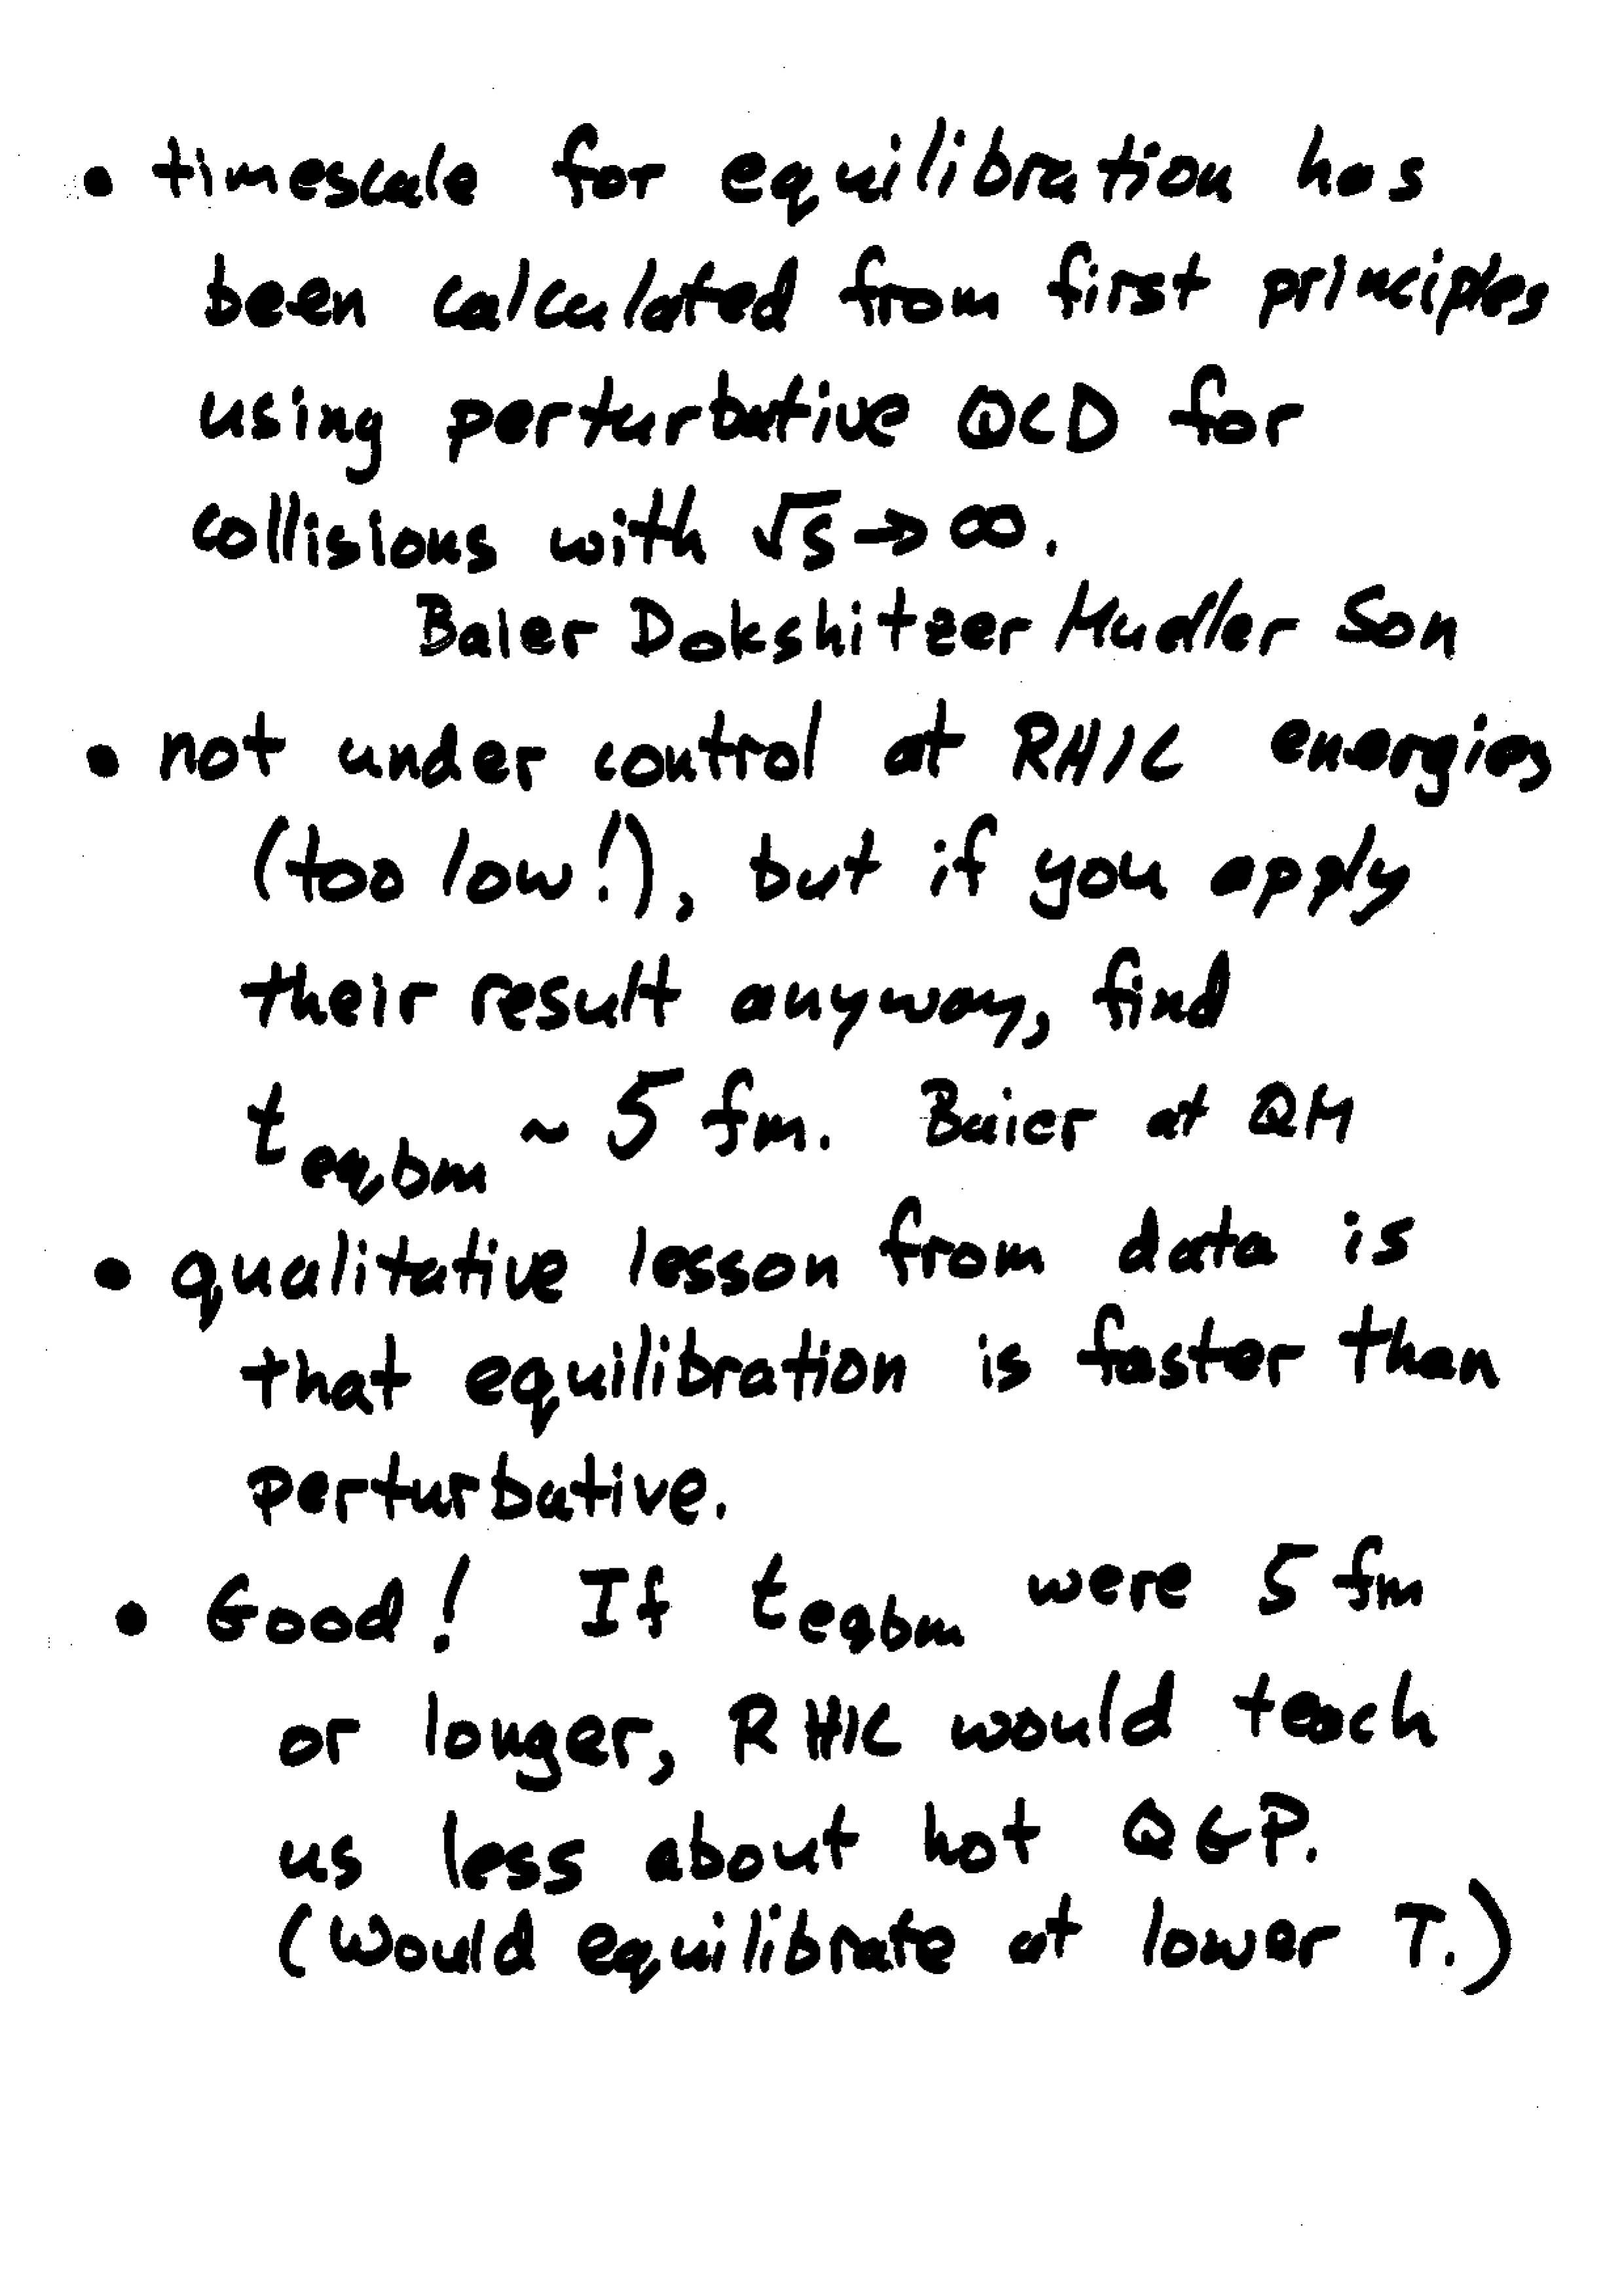 • timescale for equilibration has
been calculated from first principles
using perturbative QCD for
collisions with √s → ∞.
Baier Dokshitzer Mueller Son
• not under control at RHIC energies
(too low!), but if you apply
their result anyway, find
t_eqbm ~ 5 fm. Baier at QM
• qualitative lesson from data is
that equilibration is faster than
perturbative.
• Good! If t_eqbm were 5 fm
or longer, RHIC would teach
us less about hot QGP.
(Would equilibrate at lower T.)